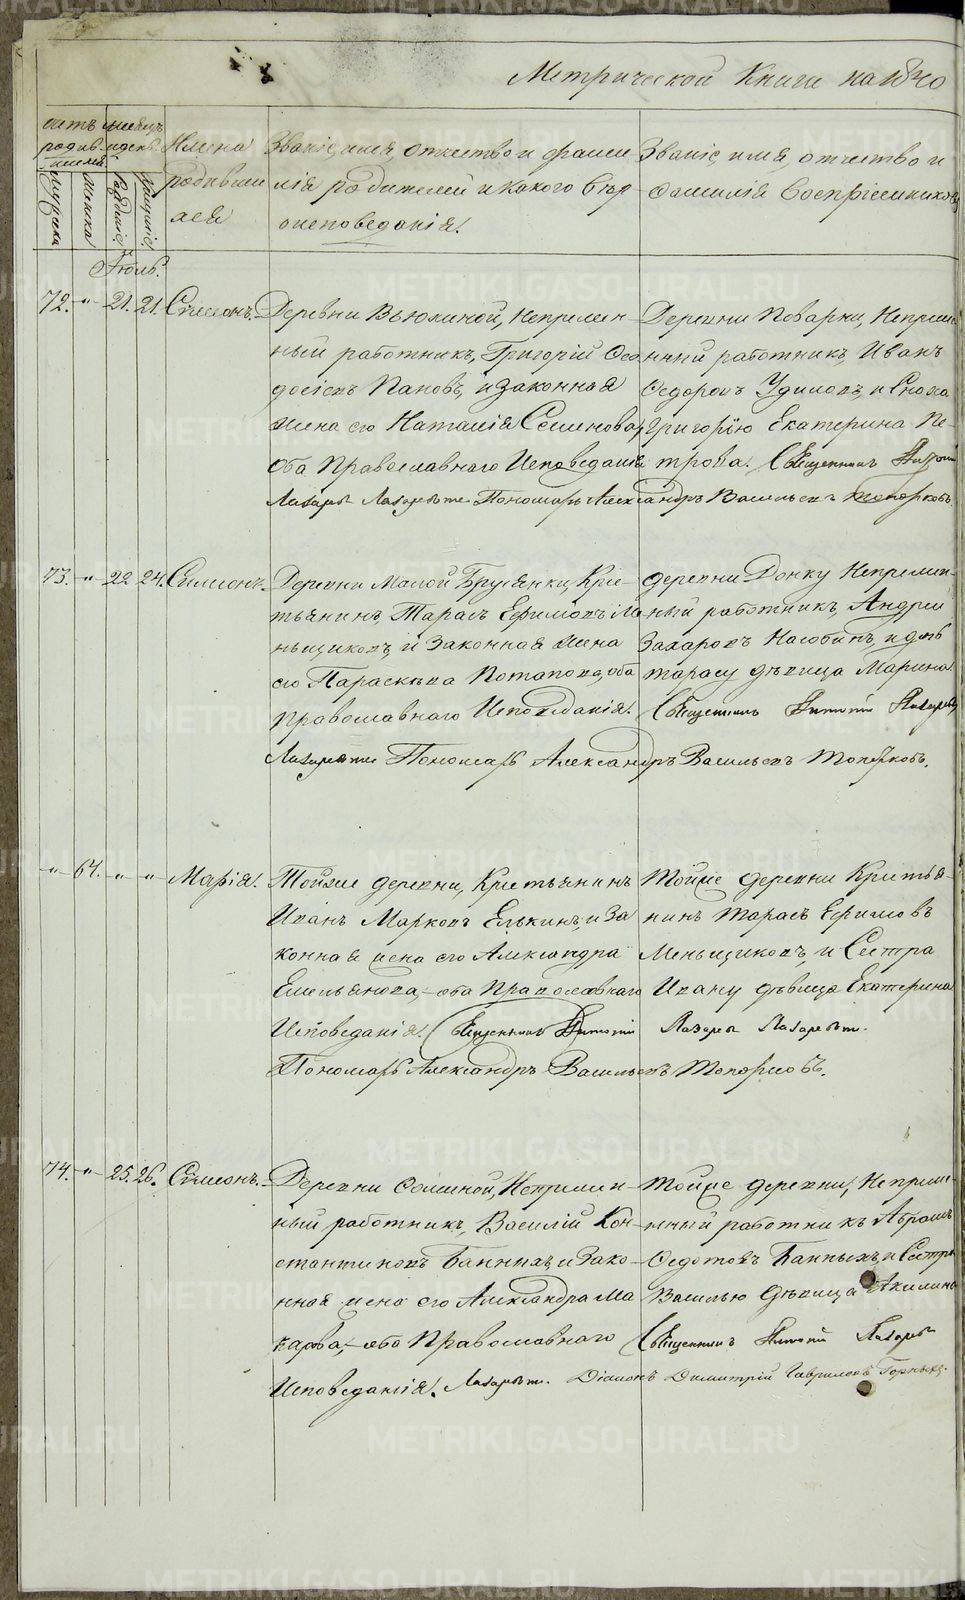 Метрической Книги на 1840
счетъ родив-
месяцъ и день
Имена
родивши
хся
Званіе, имя, отчество и фами
лія родителей и какого вѣро
исповеданія.
Званіе имя, отчество и
фамилія Воспріемниковъ
мужска
женска
Рожденіе
Крещеніе
Іюль.
72. " 21. 21. Симеонъ.
Деревни Вьюхиной, Непремен
ный работникъ, Григорій Ѳео
досіевъ Пановъ, и законная
жена его Наталія Семенова,
Оба Православнаго Исповеданія
Деревни Поварни, Непреме
нный работникъ, Иванъ
Ѳедоровъ Удиловъ, и Сноха
Григорію Екатерина Пе-
трова. Священникъ
Лазаревъ. Пономарь Александръ Васильевъ Топорковъ.
73. " 22 24. Симеонъ.
Деревни Малой Брусянки, Кре
стьянинъ, Тарасъ Ефимовъ Ме
ньщиковъ, и законная жена
его Параскева Потапова, оба
православнаго Исповеданія.
деревни Непремен-
ный работникъ, Андрей
Захаровъ и дочь
тарасу дѣвица Марина
Священникъ Лазарь
Пономарь Александръ Васильевъ Топорковъ.
" 64. " " Марія.
Тойже деревни, Крестьянинъ
Иванъ Марковъ Елькинъ, и за
конная жена его Александра
Емельянова, оба Православнаго
Исповеданія. Священникъ
Тойже деревни Крестья-
нинъ Тарасъ Ефимовъ
Меньщиковъ, и Сестра
Ивану дѣвица Екатерина
Лазарь
Пономарь Александръ Васильевъ Топорковъ.
74. " 25. 26. Симеонъ.
Деревни Соминой, Непремен
ный работникъ, Василій Кон-
стантиновъ Банныхъ, и зако-
нная жена его Александра Ма
карова, оба Православнаго
Исповеданія.
Тойже деревни, Непреме-
нный работникъ Абрамъ
Ѳедотовъ Банныхъ, и Сестра
Василью дѣвица Акилина
Священникъ Лазарь
Діаконъ Димитрій Гавриловъ Горныхъ.
METRIKI.GASO-URAL.RU